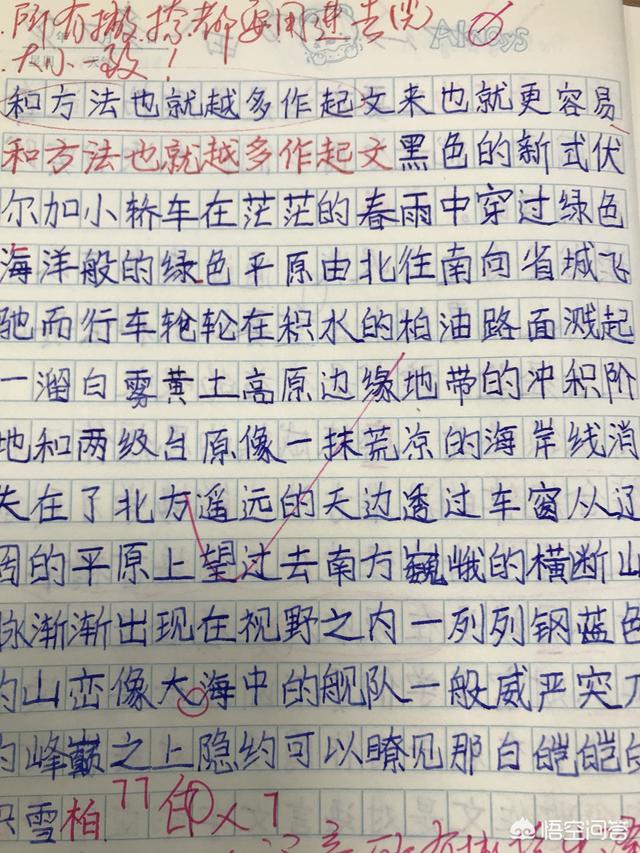 所有撇捺都要用速去
大小一致！
Always
和方法也就越多作起文来也就更容易
和方法也就越多作起文黑色的新式伏
尔加小轿车在茫茫的春雨中穿过绿色
海洋般的绿色平原由北往南向省城飞
驰而行车轮轮在积水的柏油路面溅起
一溜白雾黄土高原边缘地带的冲积阶
地和两级台原像一抹荒凉的海岸线消
失在了北方遥远的天边透过车窗从辽
阔的平原上望过去南方巍峨的横断山
脉渐渐出现在视野之内一列列钢蓝色
的山峦像大海中的舰队一般威严突兀
的峰巅之上隐约可以瞭见那白皑皑的
积雪柏
悟空问答